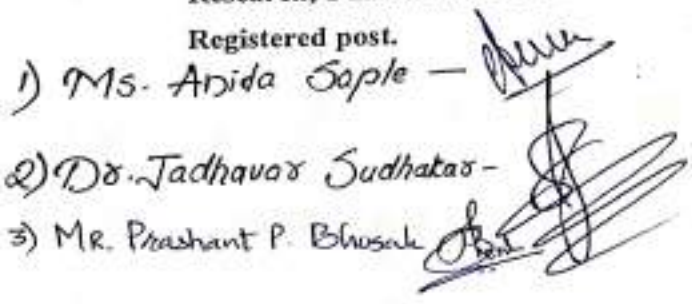 Registered post.
1) Ms. Anida Saple -
2) Dr. Jadhavar Sudhakar -
3) MR. Prashant P. Bhosale